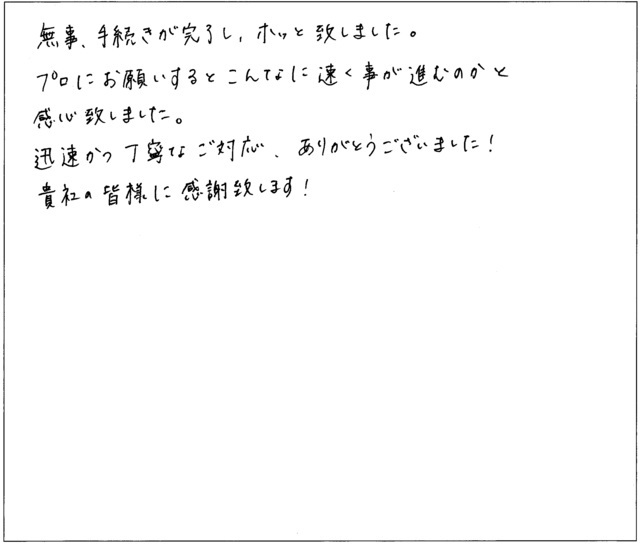 無事、手続きが完了し、ホッと致しました。
プロにお願いするとこんなに速く事が進むのかと
感心致しました。
迅速かつ丁寧なご対応、ありがとうございました!
貴社の皆様に感謝致します!